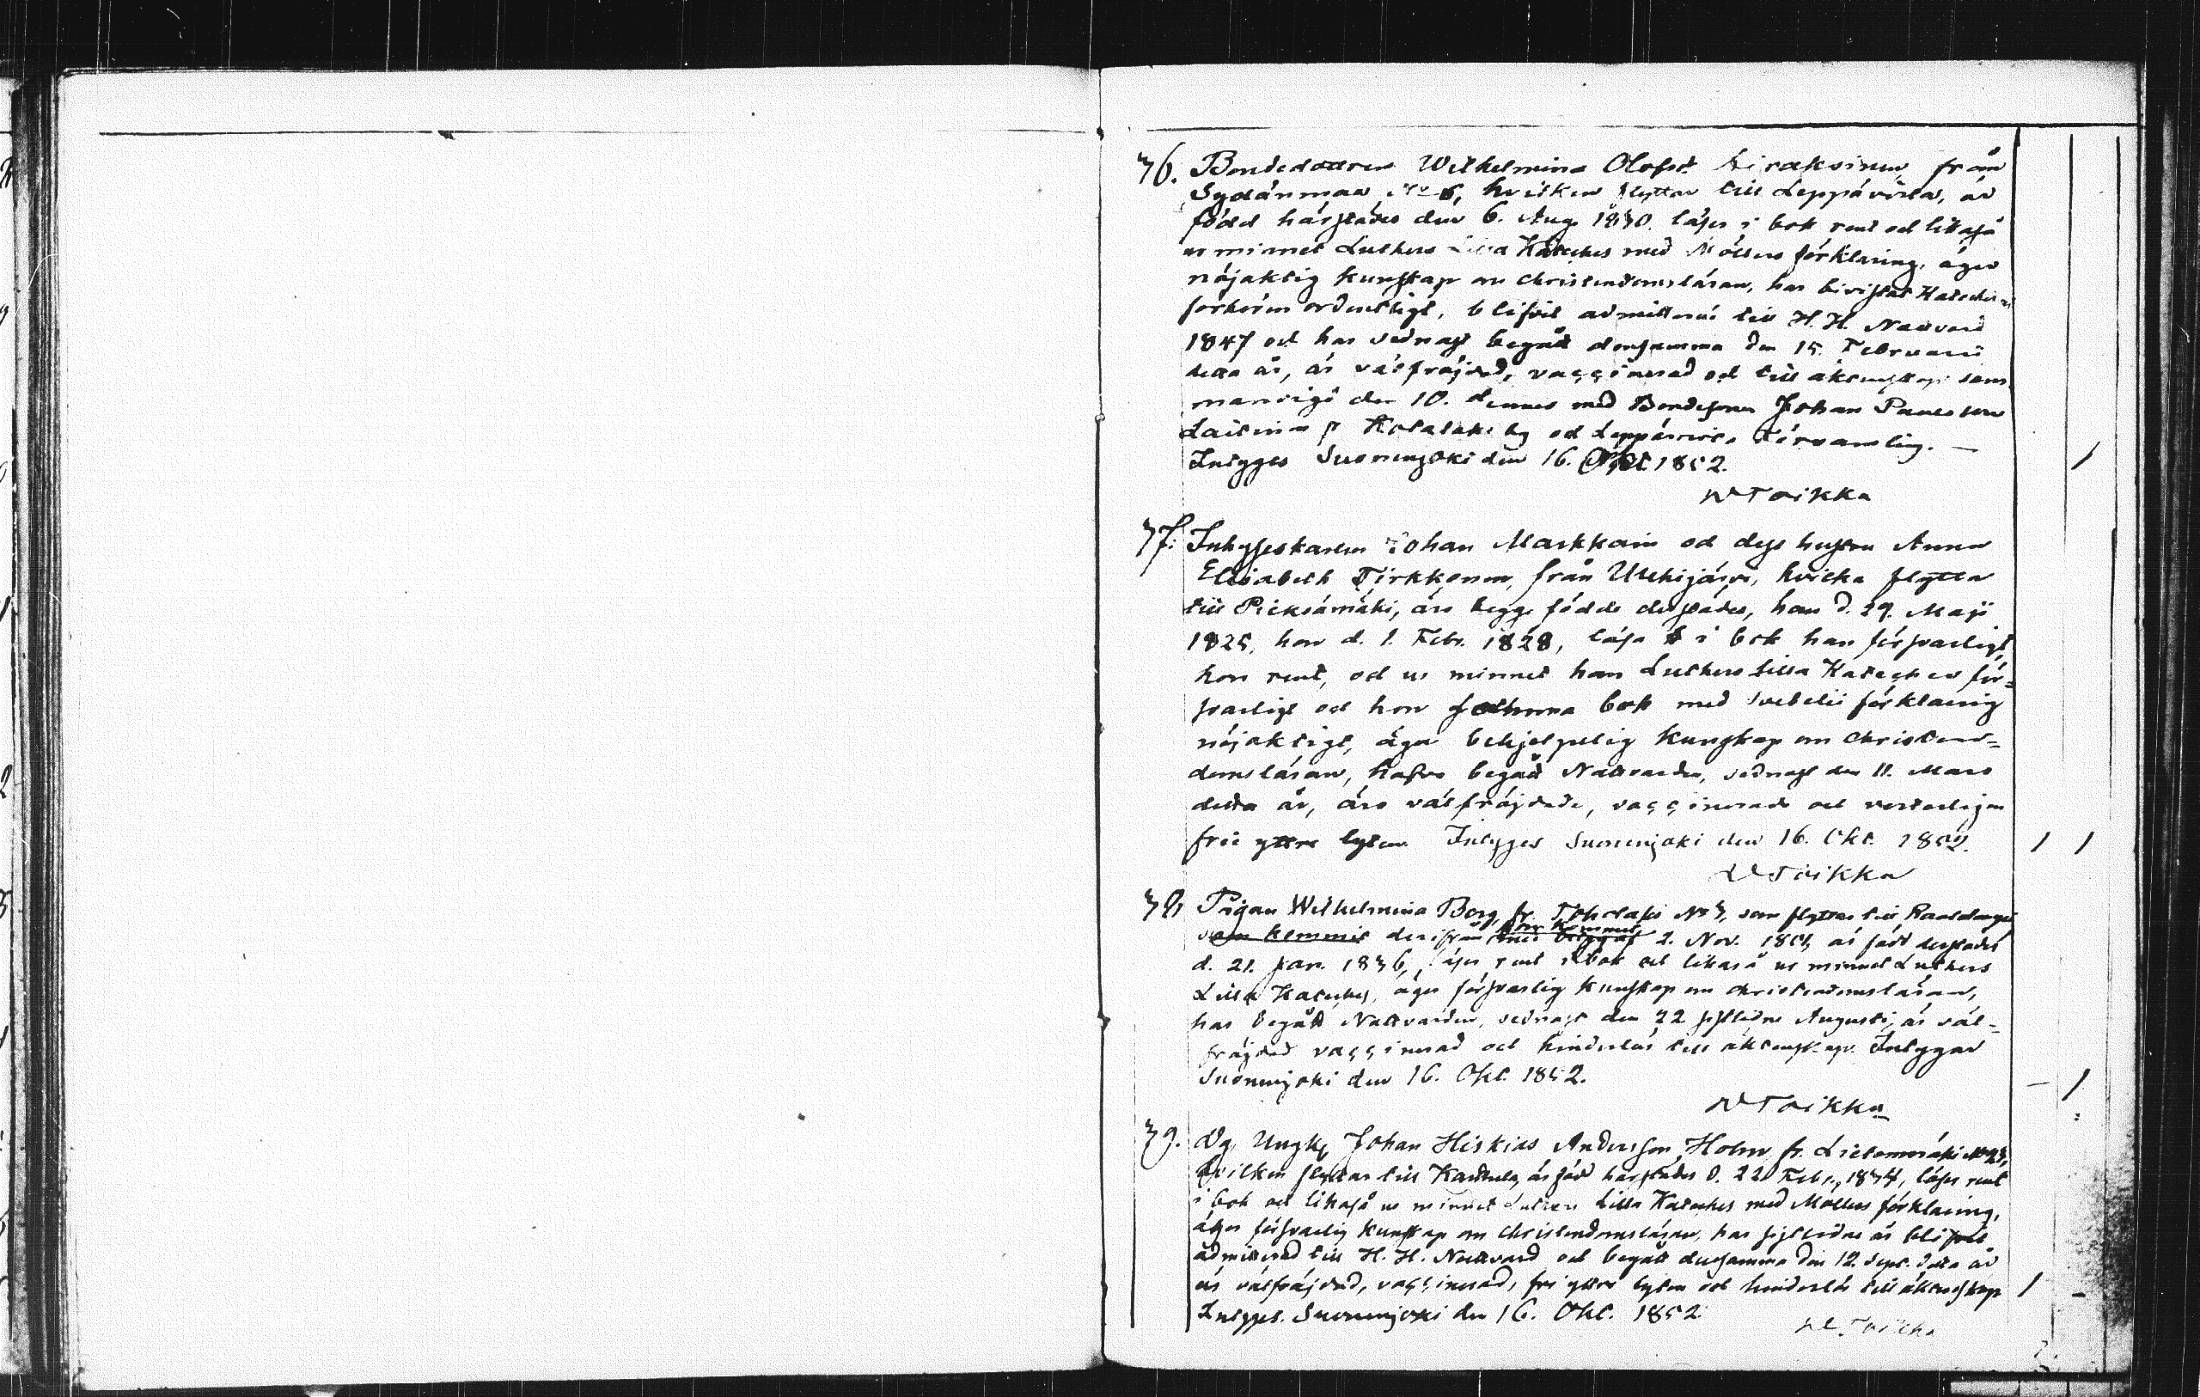 36. Bondedottren Wilhelmina Olofsd. Hiraksinen, från
Sydänmaa No 6, hvilken flyttar till Leppävirta, är
född härstädes den 6. Aug. 1830. läser i bok rent och likaså
ur minnet Luthers Lilla Kateches med Möllers förklaring, äger
nöjaktig kunskap om christendomsläran, har bivistat Kateches
förhören ordentligt, blifvit admitterad till H. H. Nattvard
1847 och har sednast begått densamma den 15. Februarii
detta år, är välfräjdad, vaccinerad och till äktenskap sam
manvigd den 10. dennes med Bondesonen Johan Paulsson
Laitinen fr by och Leppävirta församling. —
Intygges Suonenjoki den 16. Okt 1852.
W Toikka
37. Inhyseskarlen Johan Markkain och dess hustru Anna
Elisabeth Tirkkonen, från Utthijärvi, hvilka flytta
till Pieksämäki, äro begge födde derstädes, han d. 29. Maji
1825, hon d. 1. Febr. 1828, läsa i bok han försvarligt,
hon rent, och ur minnet han Luthers Lilla Kateches för=
svarligt och hon samma bok med Svebelii förklaring
nöjaktigt, äga behjelpelig kunskap om christen=
domsläran, hafva begått Nattvarden, sednast den 11. Mars
detta år, äro välfräjdade, vaccinerade och
frie yttre lyten Intygges Suonenjoki den 16. Okt. 1852.
W Toikka
38, Pigan Wilhelmina Borg, fr. No 3, som flyttar till
som kommit derifrån hon kommit 2. Nov. 1851, är född derstädes
d. 21. Jan. 1836, läser rent i bok och likaså ur minnet Luthers
Lilla Kateches, äger försvarlig kunskap om christendomsläran,
har begått Nattvarden, sednast den 22 sistlidne Augusti, är väl=
fräjdad vaccinerad och hinderlös till äktenskap. Intygar
Suonenjoki den 16. Okt. 1852.
W Toikka
39. Dg Ungk. Johan Hiskias Andersson Holm fr. Lietemäki No 23,
hvilken flyttar till Karttula, är född härstädes d. 22 Febr. 1834, läser rent
i bok och likaså ur minnet Luthers Lilla Kateches med Möllers förklaring,
äger försvarlig kunskap om christendomsläran, har sistlidne år blifvit
admitterad till H. H. Nattvard och begått densamma den 12. Sept. detta år
är välfräjdad, vaccinerad, fri yttre lyten och hinderlös till äktenskap
Intygges. Suonenjoki den 16. Okt. 1852
W. Toikka